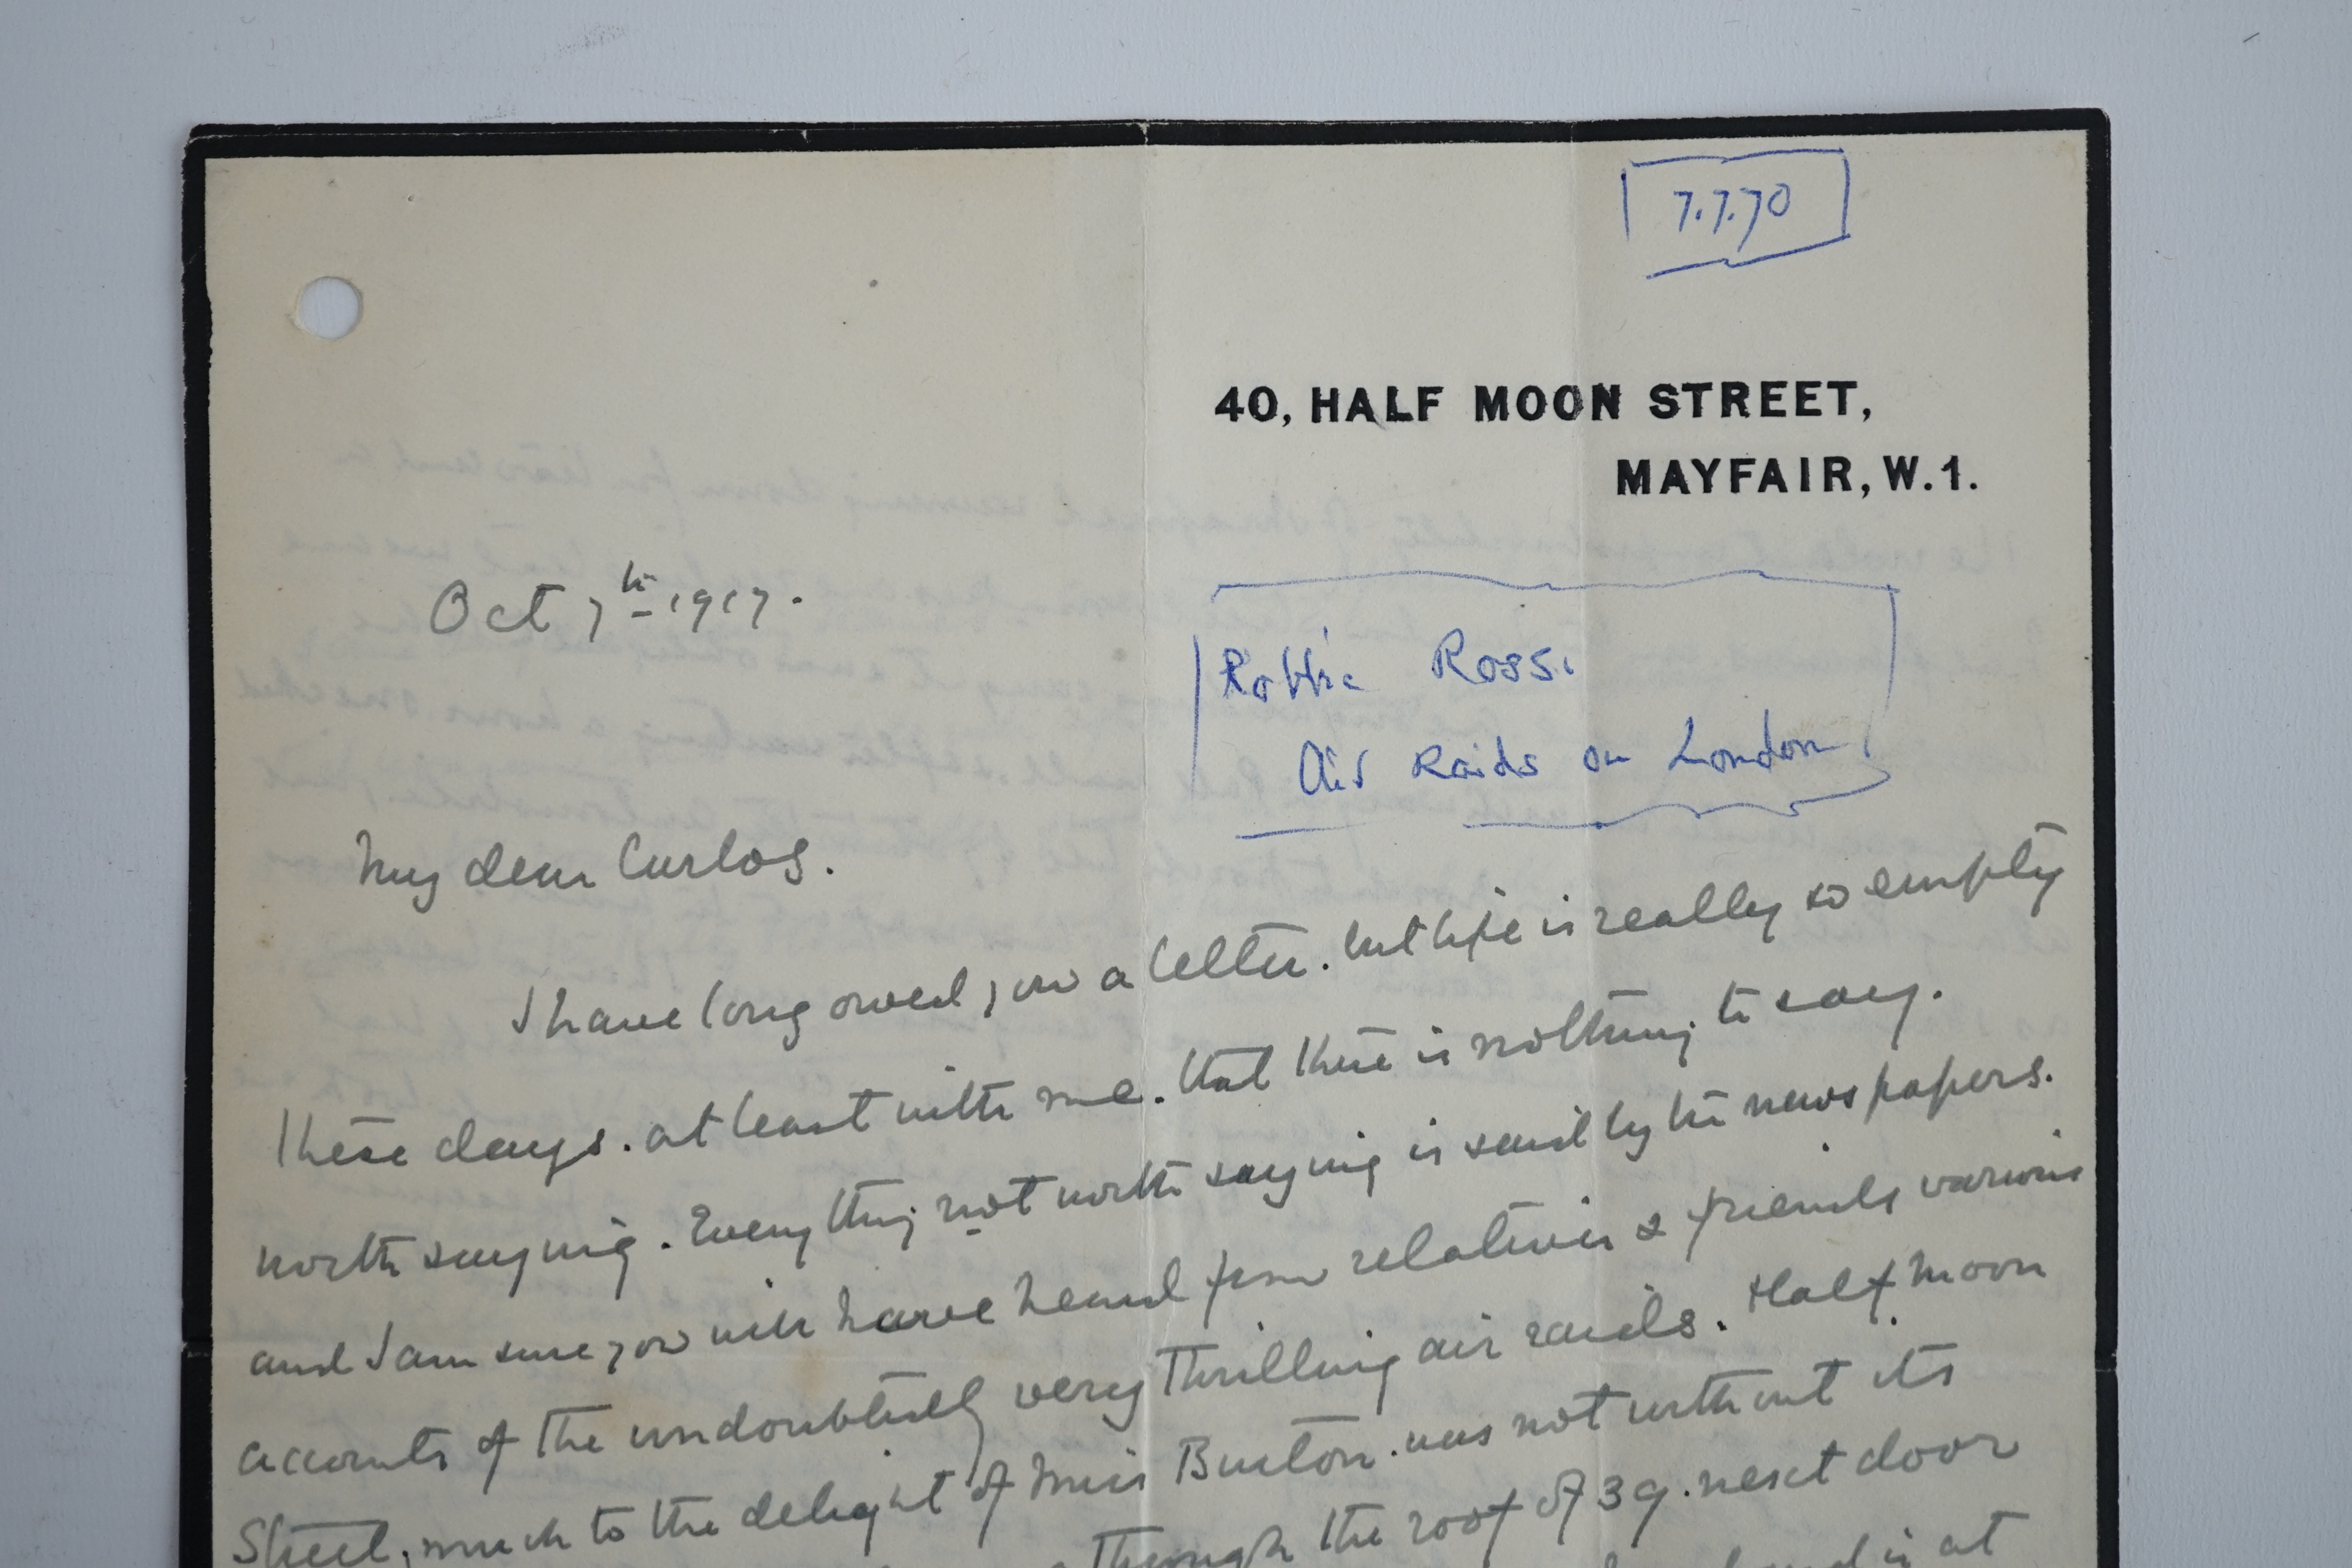 7.7.70
40, HALF MOON STREET,
MAYFAIR, W.1.
Oct 7th 1917.
Robbie Ross.
Air Raids on London.
My dear Carlos.
I have long owed you a letter. but life is really so empty
these days. at least with me. that there is nothing to say.
worth saying. Everything not worth saying is said by the newspapers.
and I am sure you will have heard from relatives & friends various
accounts of the undoubtedly very thrilling air raids. Half Moon
Street, much to the delight of Miss Burton. was not without its
through the roof of 39. next door
is at